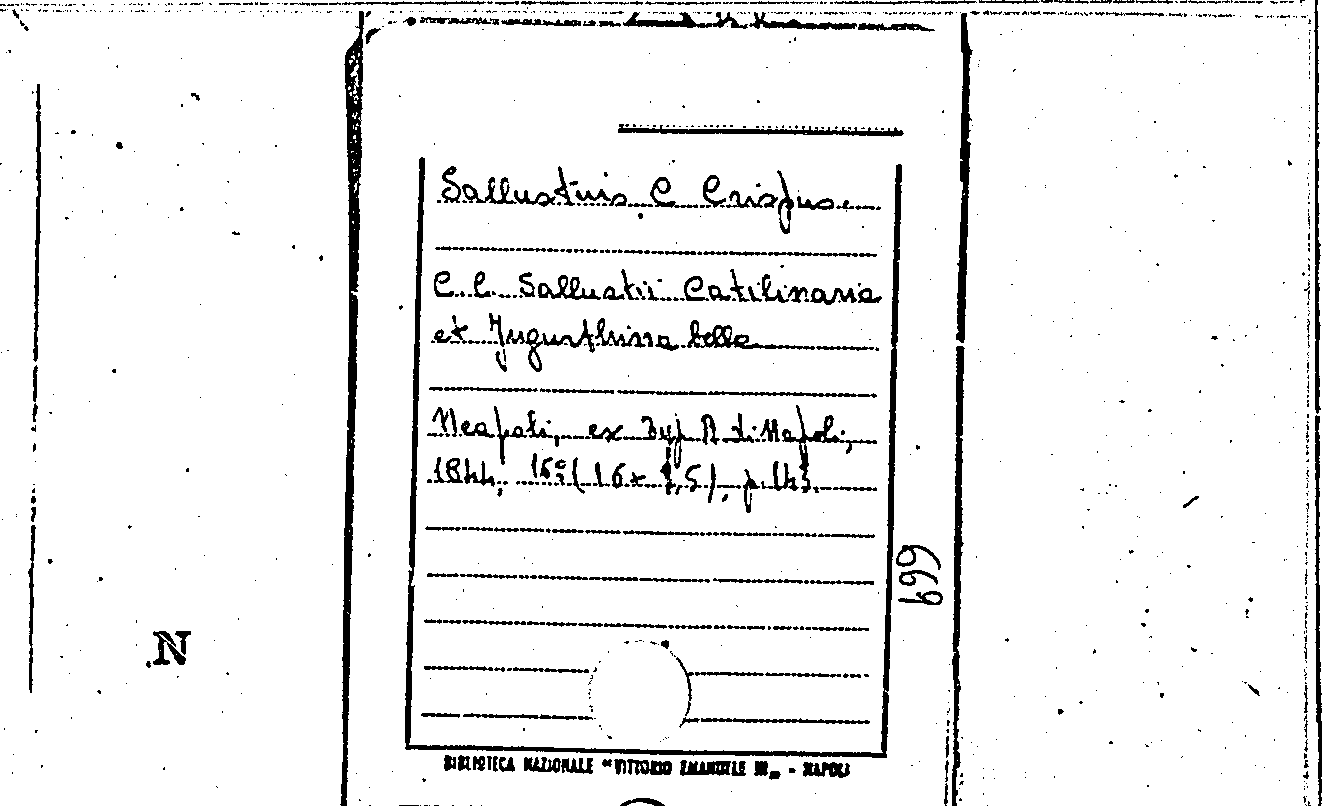 Sallustius C Crispus.
C. C. Sallustii Catilinaria
et Jugurthina bella
Neapoli, ex Typ A di Napoli,
1844, 16°( 16x 9,5), p. 143.
699
N
BIBLIOTECA NAZIONALE "VITTORIO EMANUELE III„ - NAPOLI